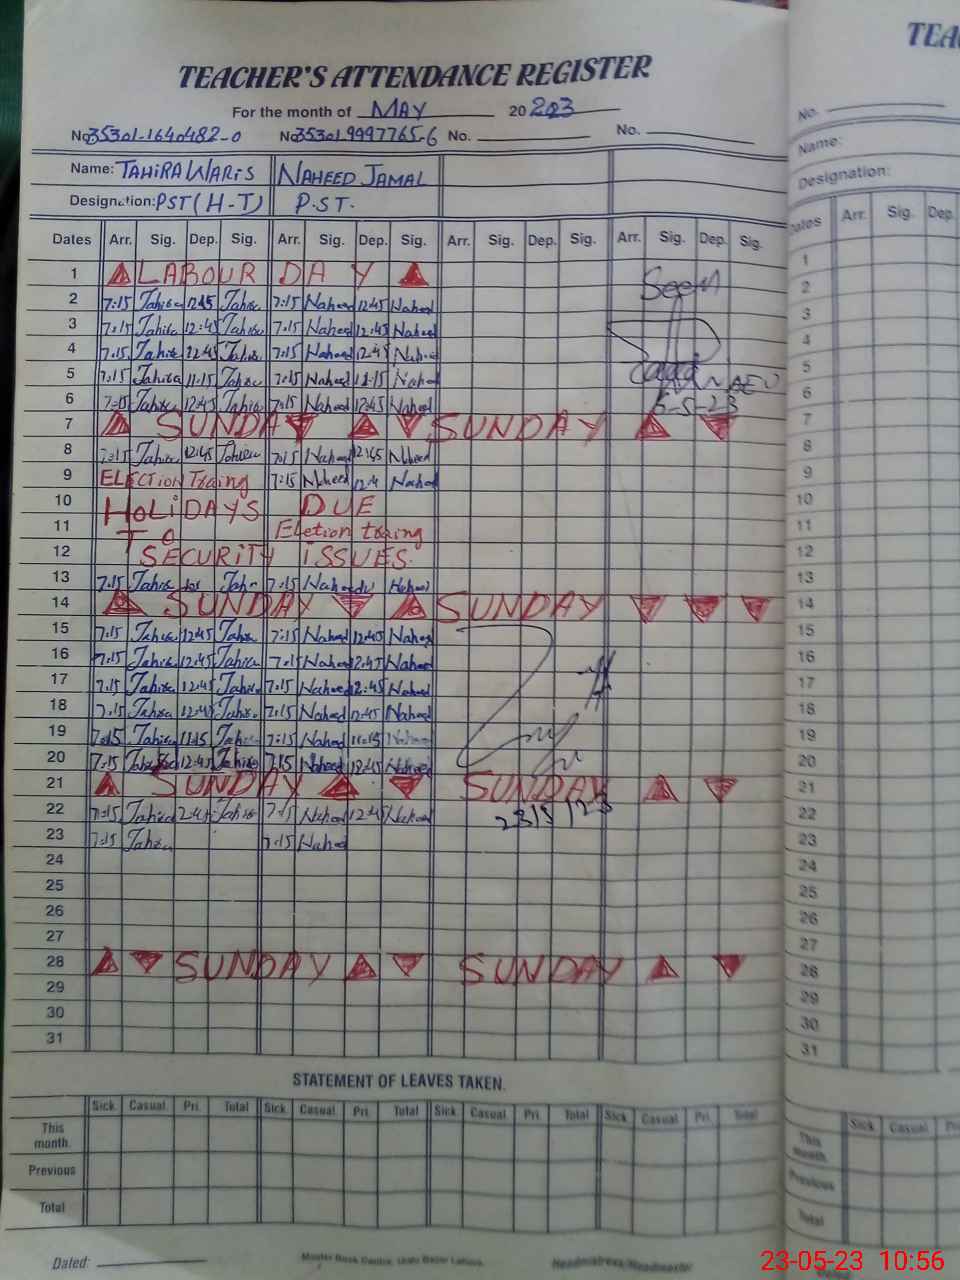 TEACHER'S ATTENDANCE REGISTER
TEA
For the month of MAY 2023
No. 35301-1640482-0 No. 35301-9997765-6 No. No.
No.
Name: TAHiRA WARiS NAHEED JAMAL
Name:
Designation: PST (H-T) P.S.T.
Designation:
Dates Arr. Sig. Dep. Sig. Arr. Sig. Dep. Sig. Arr. Sig. Dep. Sig. Arr. Sig. Dep. Sig.
Dates Arr. Sig. Dep.
1 LABOUR DAY
2 7:15 Tahira 12:45 Tahira 7:15 Naheed 12:45 Naheed
Seen
3 7:15 Tahira 12:45 Tahira 7:15 Naheed 12:45 Naheed
4 7:15 Tahira 12:45 Tahira 7:15 Naheed 12:45 Naheed
5 7:15 Tahira 11:15 Tahira 7:15 Naheed 11:15 Naheed
6 7:15 Tahira 12:45 Tahira 7:15 Naheed 12:45 Naheed
6-5-23
7 SUNDAY SUNDAY
8 7:15 Tahira 12:45 Tahira 7:15 Naheed 12:45 Naheed
9 ELECtion Traing 7:15 Naheed 12:4 Naheed
10 HOLiDAYS DUE
11 TO Eletion traing
12 SECURiTY iSSUES.
13 7:15 Tahira Tahir 7:15 Naheed Naheed
14 SUNDAY SUNDAY
15 7:15 Tahira 12:45 Tahira 7:15 Naheed 12:45 Naheed
16 7:15 Tahira 12:45 Tahira 7:15 Naheed 12:45 Naheed
17 7:15 Tahira 12:45 Tahira 7:15 Naheed 12:45 Naheed
18 7:15 Tahira 12:45 Tahira 7:15 Naheed 12:45 Naheed
19 7:15 Tahira 11:15 Tahira 7:15 Naheed 11:15 Naheed
20 7:15 Tahira 12:45 Tahira 7:15 Naheed 12:45 Naheed
21 SUNDAY SUNDAY
22 7:15 Tahira 12:45 Tahira 7:15 Naheed 12:45 Naheed
23/5/23
23 7:15 Tahira 7:15 Naheed
24
25
26
27
28 SUNDAY SUNDAY
29
30
31
1
2
3
4
5
6
7
8
9
10
11
12
13
14
15
16
17
18
19
20
21
22
23
24
25
26
27
28
29
30
31
STATEMENT OF LEAVES TAKEN.
Sick. Casual. Pri. Total Sick. Casual. Pri. Total Sick. Casual. Pri. Total Sick. Casual. Pri. Total
Sick Casual Pri
This month.
This month.
Previous
Previous
Total
Total
Dated: Master Book Centre, Urdu Bazar Lahore. Headmistress/Headmaster
23-05-23 10:56